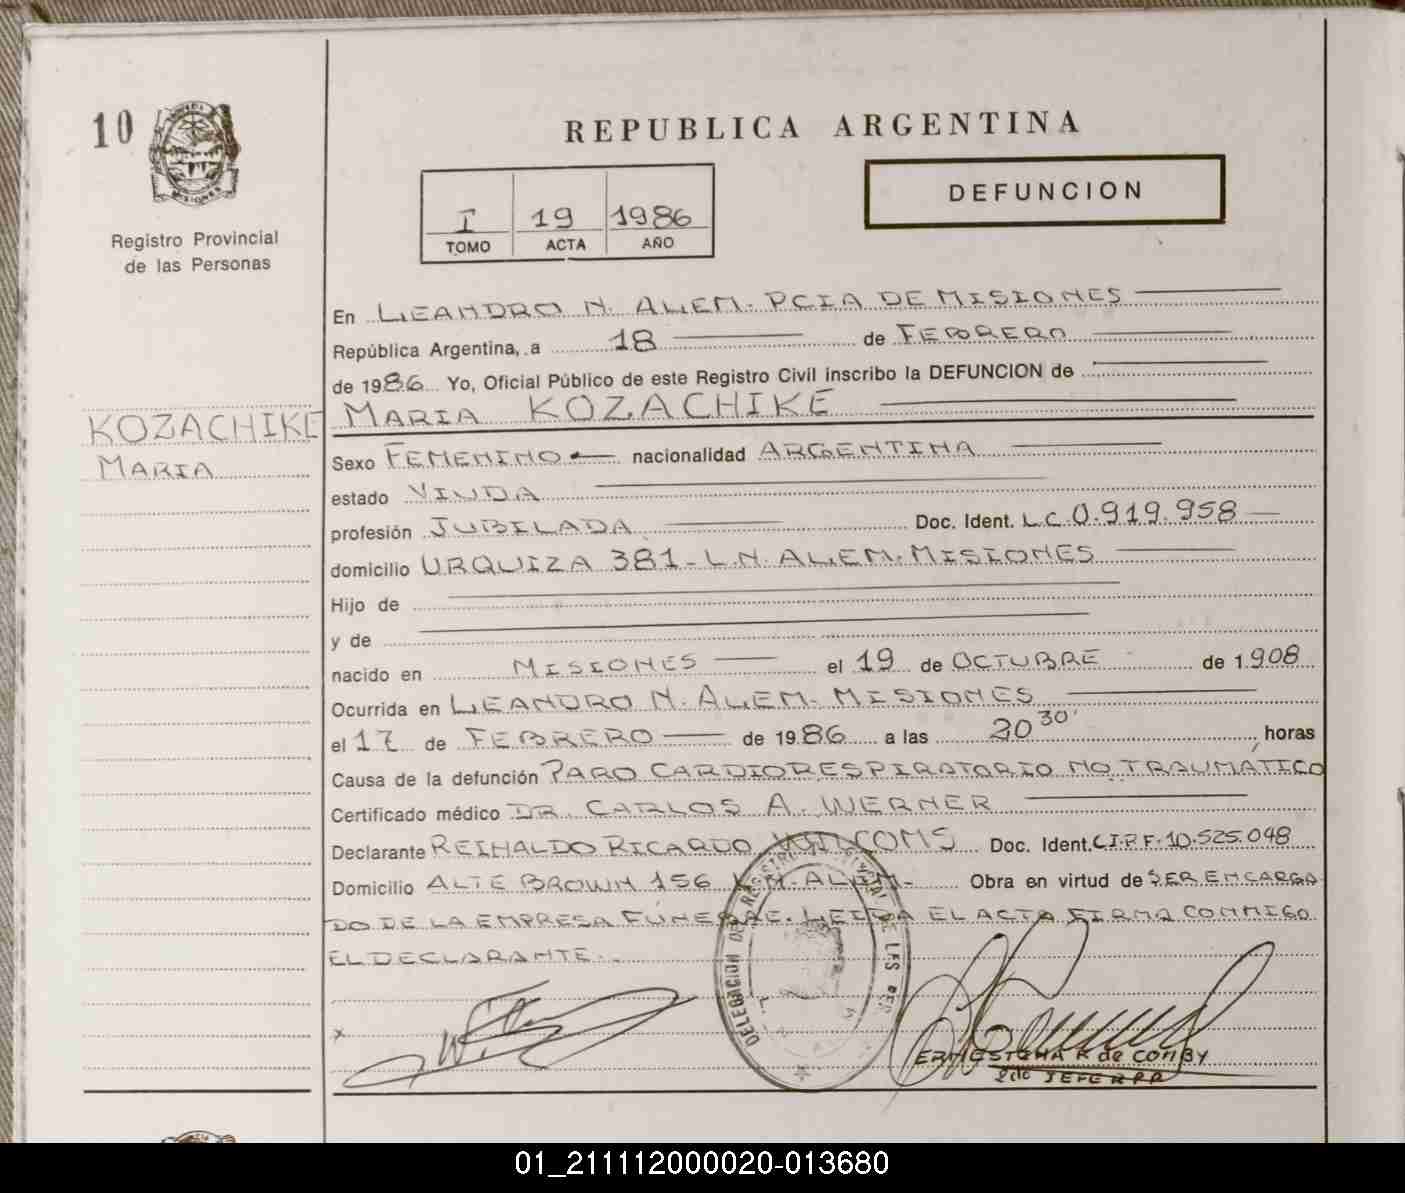 10
REPUBLICA ARGENTINA
I 19 1986
TOMO ACTA AÑO
DEFUNCION
MISIONES
Registro Provincial
de las Personas
KOZACHIKE
MARIA
En LEANDRO N. ALEM. PCIA DE MISIONES
República Argentina, a 18 de FEBRERO
de 1986 Yo, Oficial Público de este Registro Civil inscribo la DEFUNCION de
MARIA KOZACHIKE
Sexo FEMENINO nacionalidad ARGENTINA
estado VIUDA
profesión JUBILADA Doc. Ident. L.C. 0.919.958
domicilio URQUIZA 381- L.N. ALEM. MISIONES
Hijo de
y de
nacido en MISIONES el 19 de OCTUBRE de 1.908
Ocurrida en LEANDRO N. ALEM. MISIONES
el 17 de FEBRERO de 1986 a las 20 30' horas
Causa de la defunción PARO CARDIORESPIRATORIO NO TRAUMATICO
Certificado médico DR. CARLOS A. WERNER
Declarante REINALDO RICARDO Doc. Ident. C.I.P.F. 10.525.048
Domicilio ALTE BROWN 156 L.N. ALEM- Obra en virtud de SER ENCARGA
DO DE LA EMPRESA FUNEBRE. LEIDA EL ACTA FIRMA CONMIGO
EL DECLARANTE..
DELEGACION DEL REGISTRO PROVINCIAL DE LAS PER
ERNESTINA R de CONBY
2do JEFE R.P.P.
01_211112000020-013680